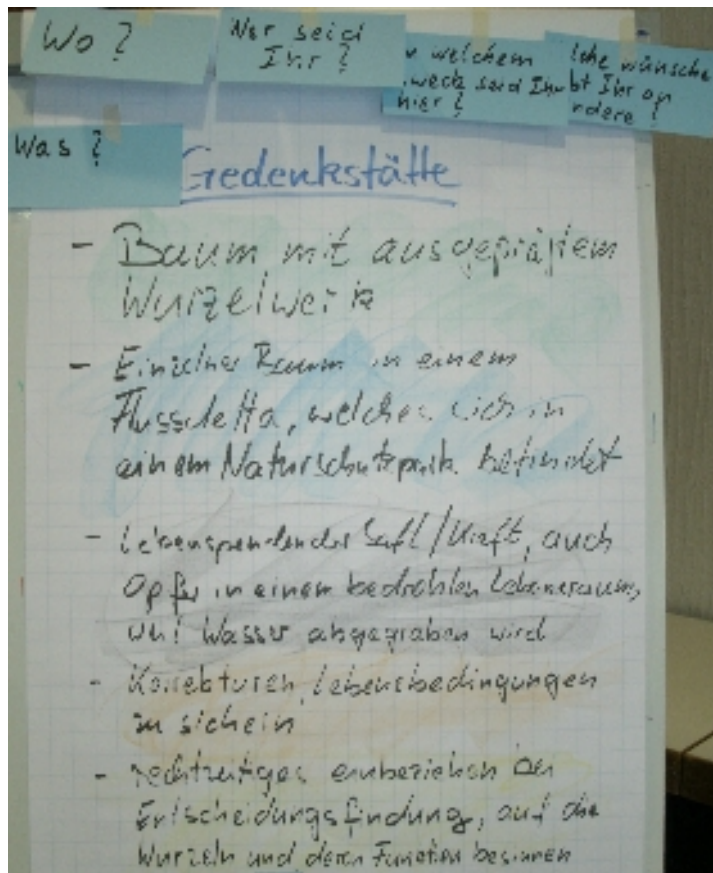 Wo ?
Wer seid
Ihr ?
welchem
weck seid Ihr
hier ?
lche wünsche
bt Ihr an
ndere ?
Was ?
Gedenkstätte
- Baum mit ausgeprägtem
Wurzelwerk
- Einzelner Baum in einem
Flussdelta, welches sich in
einem Naturschutzpark befindet
- Lebenspendender Saft/Kraft, auch
Opfer in einem bedrohten Lebensraum,
wo! Wasser abgegraben wird
- Korrekturen, Lebensbedingungen
zu sichern
- rechtzeitiges einbeziehen bei
Entscheidungsfindung, auf die
Wurzeln und deren Function besinnen